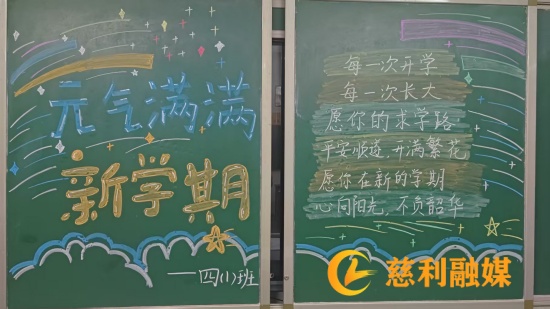 元气满满
新学期
——四(1)班
每一次开学
每一次长大
愿你的求学路
平安顺遂,开满繁花
愿你在新的学期
心向阳光,不负韶华
慈利融媒